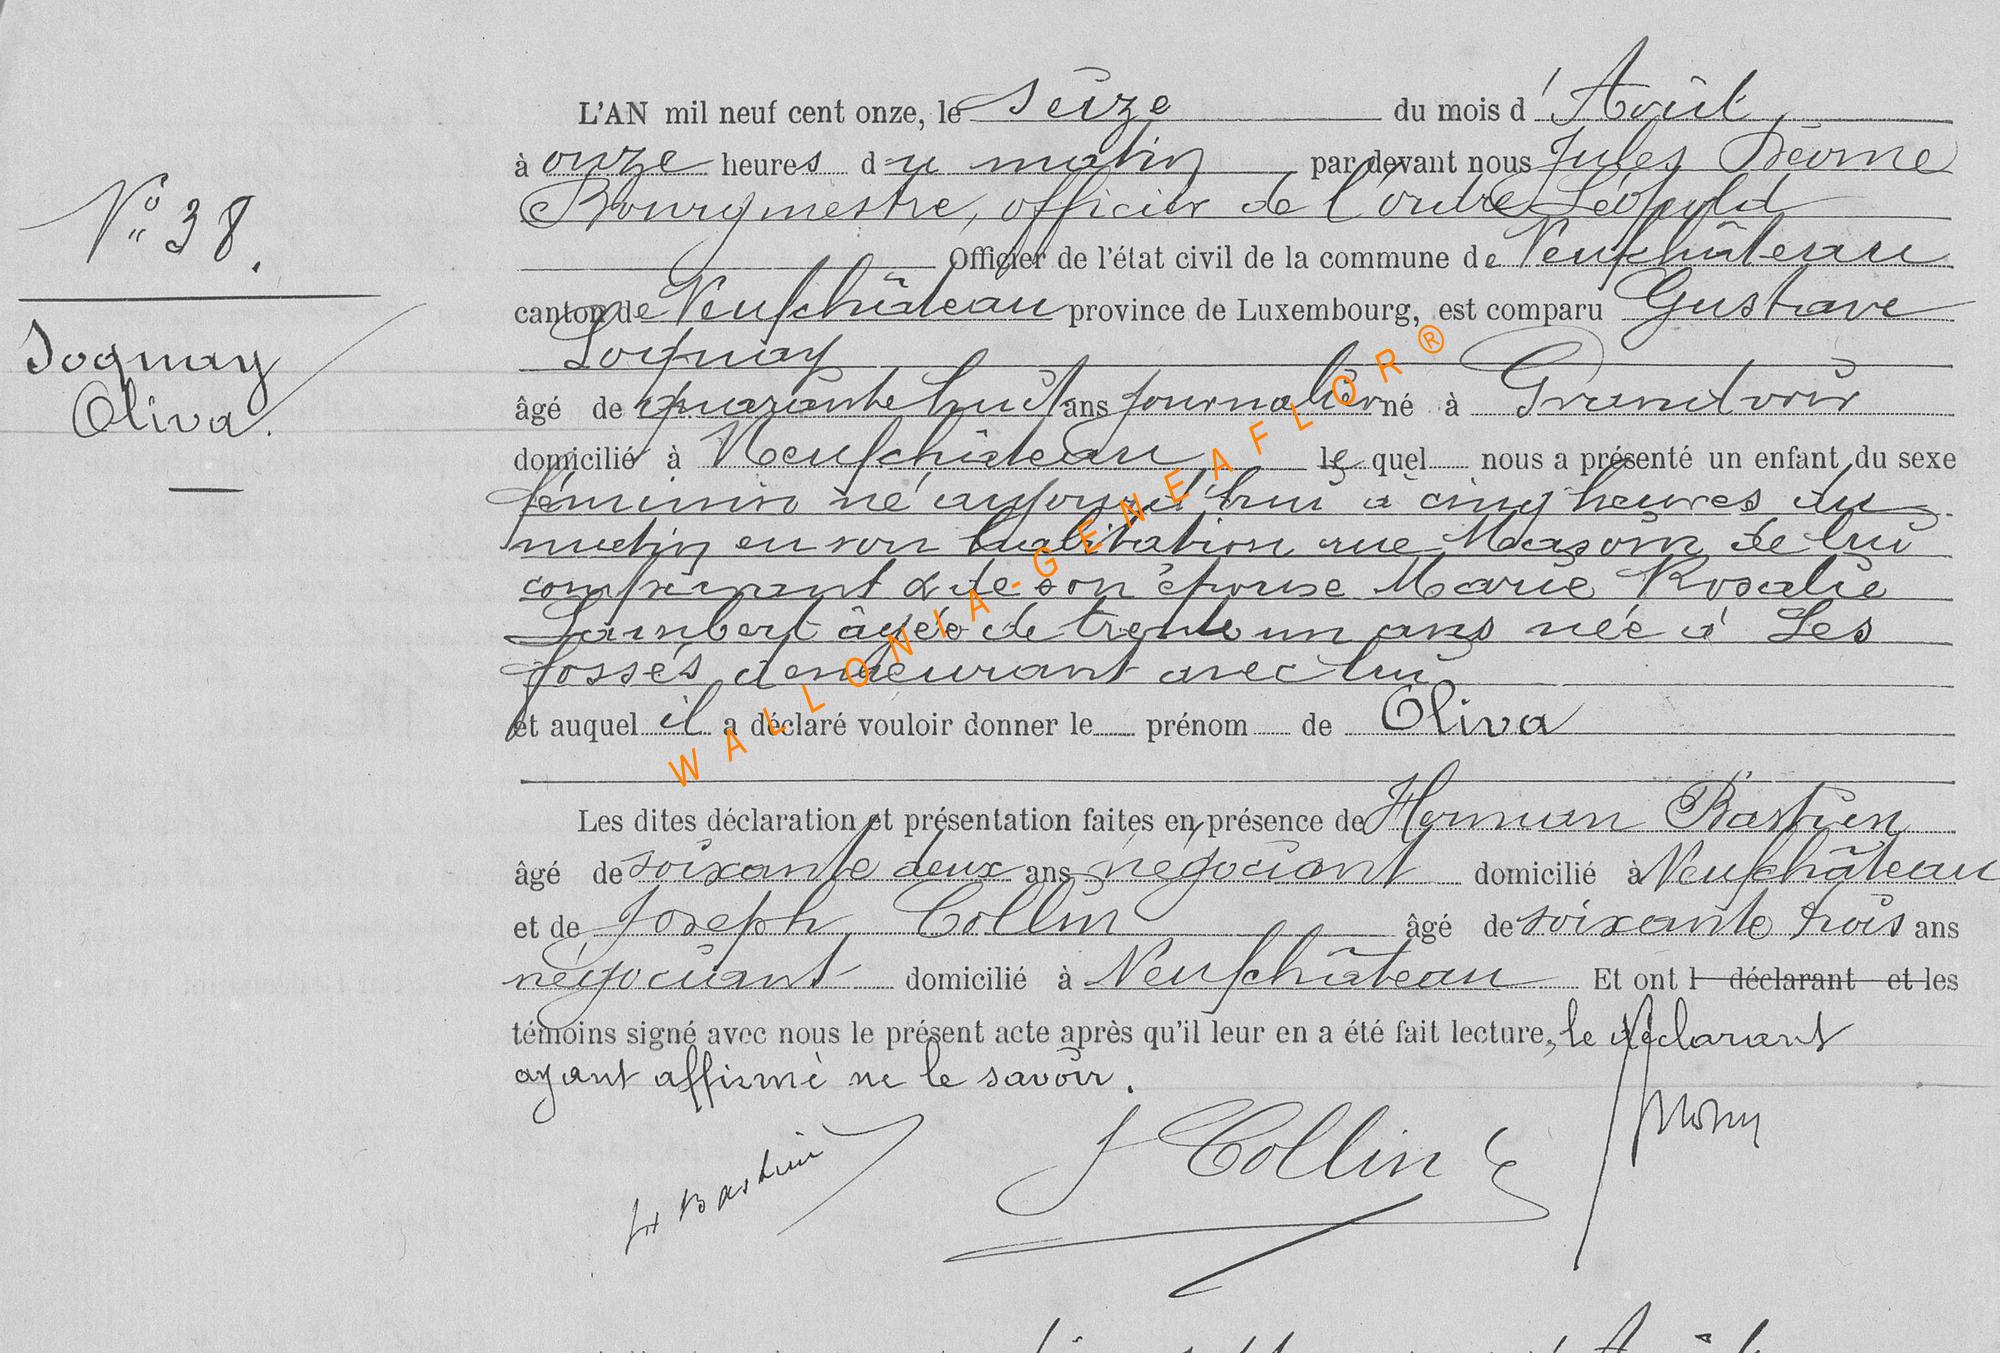 N° 38.
Soquay
Oliva.
L'AN mil neuf cent onze, le seize du mois d'Août
à onze heures du matin par devant nous Jules
Bourgmestre, officier de l'ordre Léopold
Officier de l'état civil de la commune de Neufchâteau
canton de Neufchâteau province de Luxembourg, est comparu Gustave
Soquay
âgé de quarante huit ans journalier né à Grandvoir
domicilié à Neufchâteau lequel nous a présenté un enfant du sexe
féminin né aujourd'hui à cinq heures du
matin en son habitation rue de lui
comparant & de son épouse Marie Rosalie
Lambert âgée de trente un ans née à Les
fossés demeurant avec lui
et auquel il a déclaré vouloir donner le prénom de Oliva
Les dites déclaration et présentation faites en présence de Herman Bastien
âgé de soixante deux ans négociant domicilié à Neufchâteau
et de Joseph Collin âgé de soixante trois ans
négociant domicilié à Neufchâteau Et ont l déclarant et les
témoins signé avec nous le présent acte après qu'il leur en a été fait lecture, le déclarant
ayant affirmé ne le savoir.
H Bastien
J Collin
WALLONIA-GENEAFLOR®